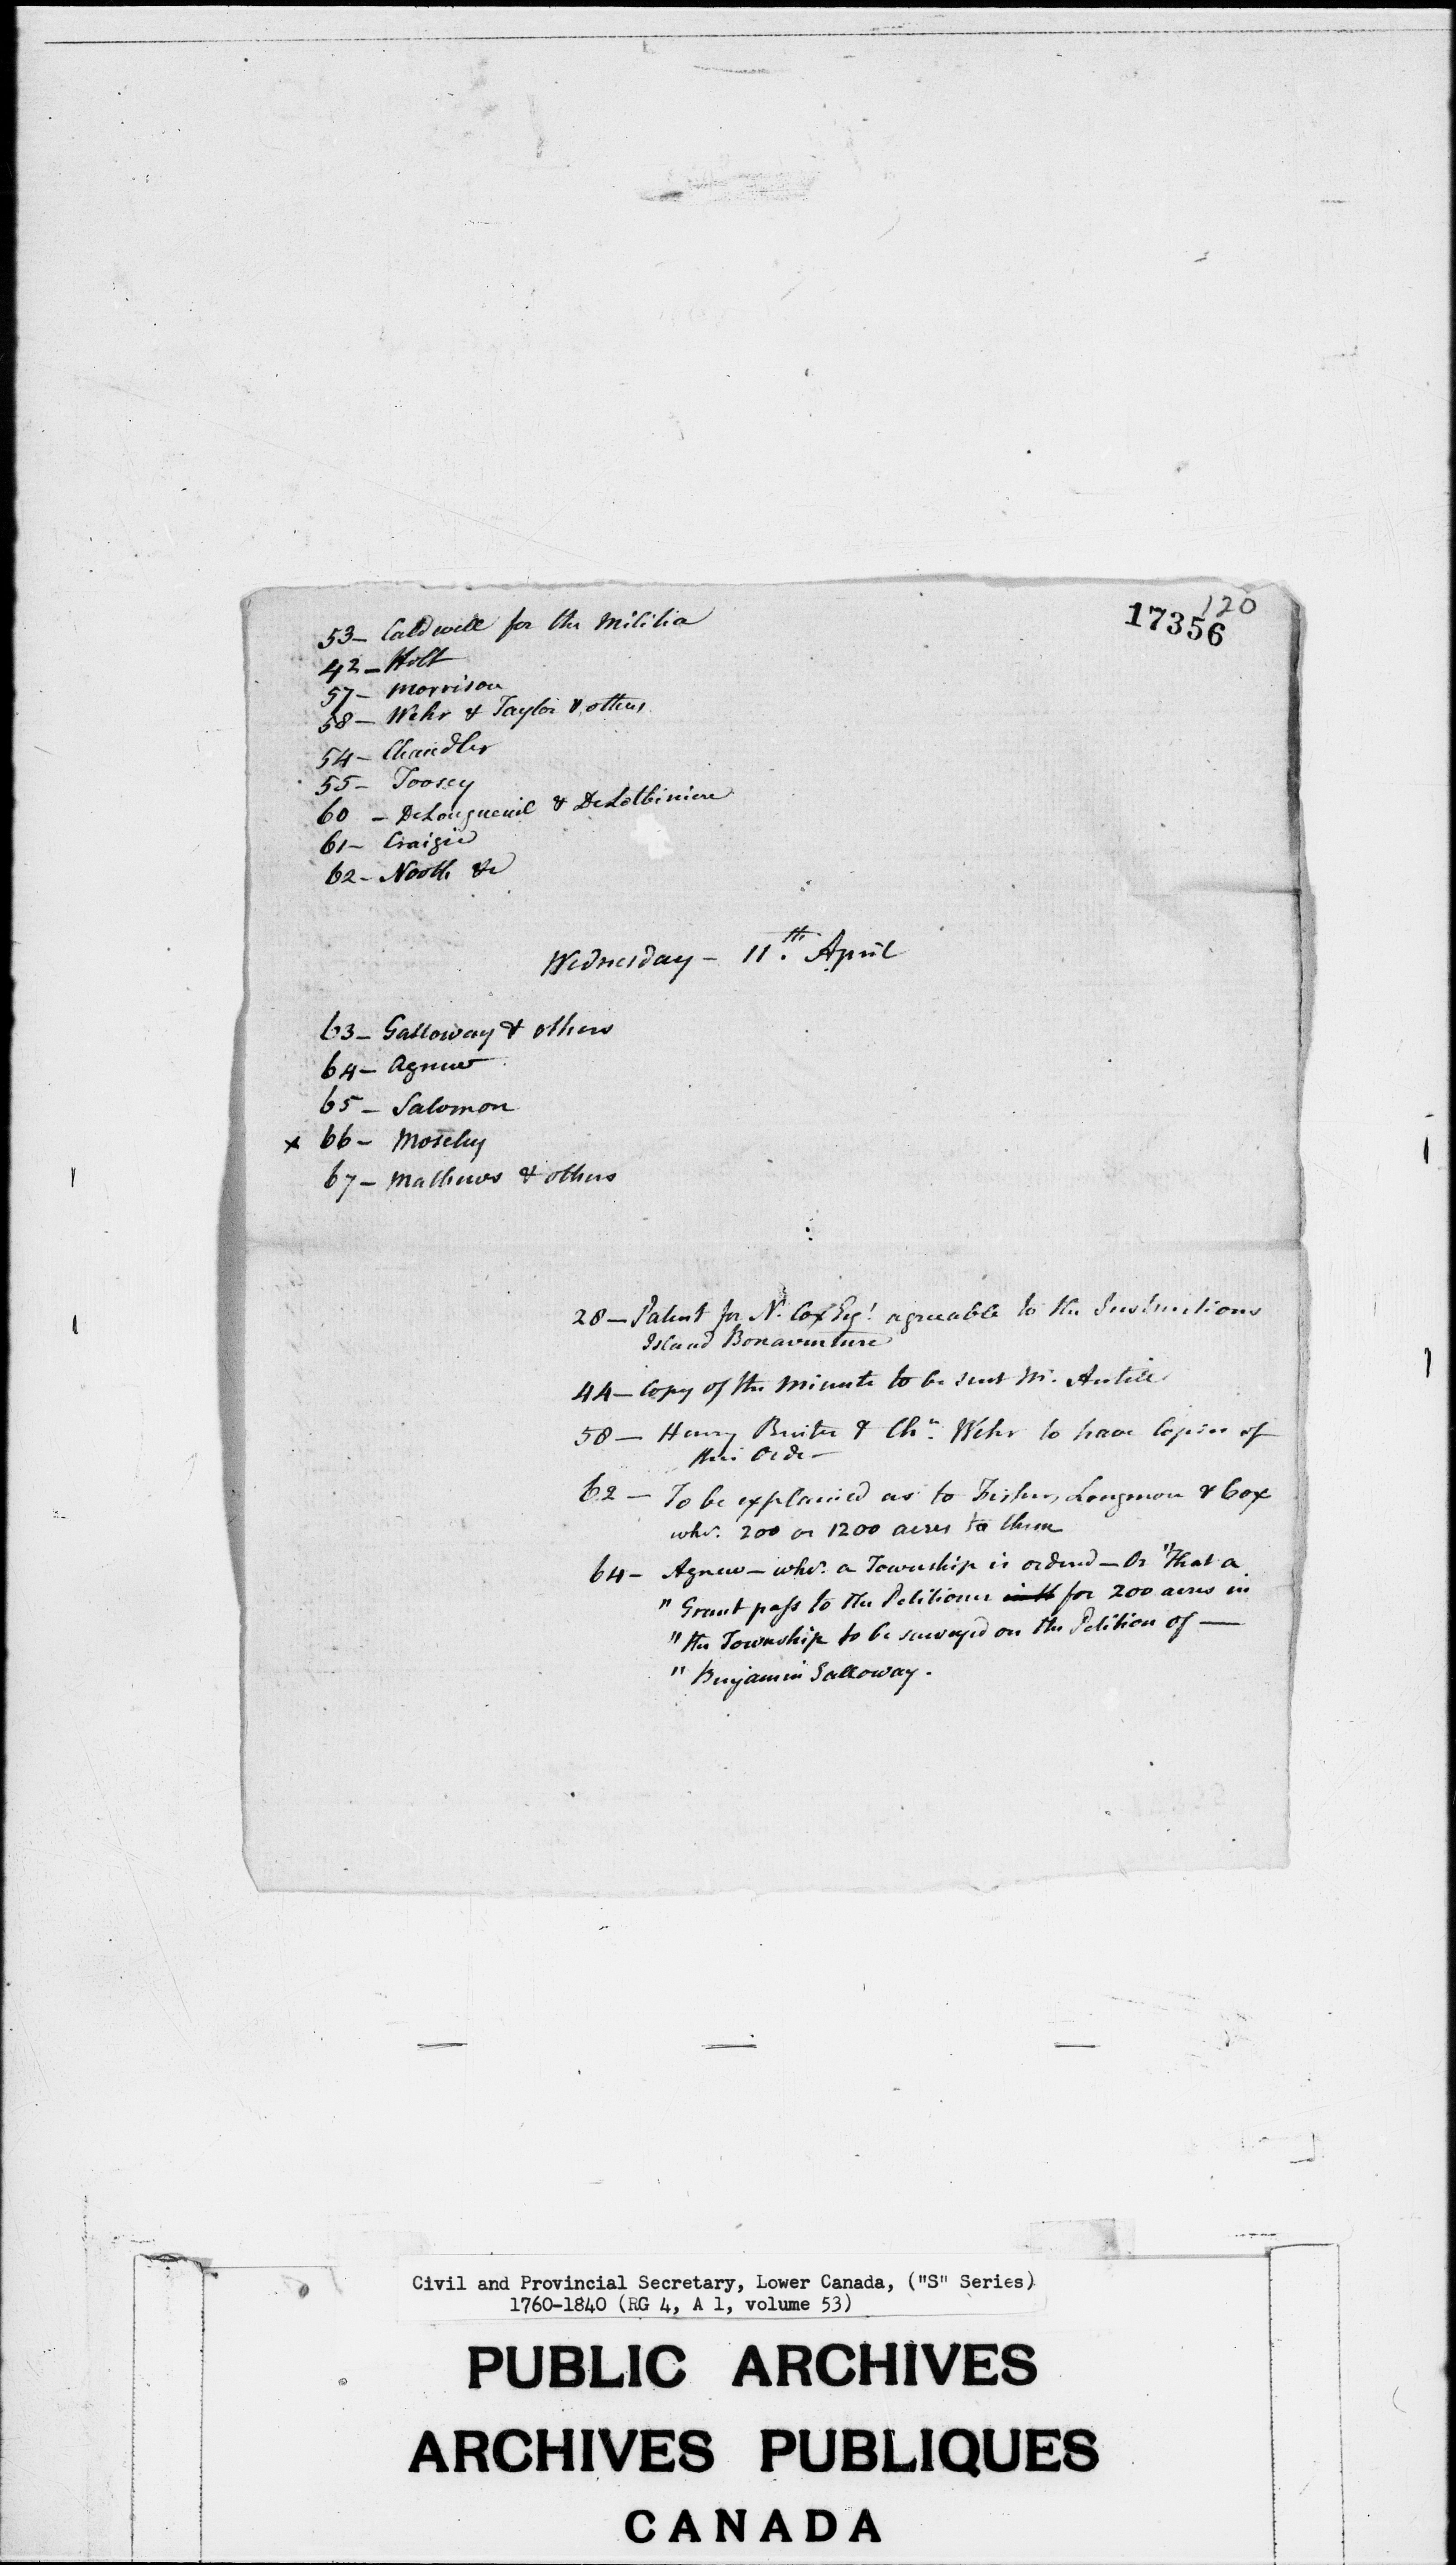 120
17356
53 - Caldwell for the Militia
42 - Holt
57 - Morrison
58 - Wehr & Taylor & others
54 - Chandler
55 - Toosey
60 - DeLongueuil & DeLotbiniere
61 - Craigie
62 - Nooth &c
Wednesday - 11th. April
63 - Galloway & others
64 - Agnew
65 - Salomon
x 66 - Moseley
67 - Mathews & others
28 - Patent for N. Cox Esqr. agreeable to the Instructions
Island Bonaventure
44 - Copy of the Minute to be sent Mr. Antill
58 - Henry Ruiter & Chn. Wehr to have Copies of
their Order
62 - To be explained as to Fisher, Longmore & Cox
whr. 200 or 1200 acres to them
64 - Agnew - whr. a Township is ordered - Or "That a
" Grant pass to the Petitioner for 200 acres in
" the Township to be surveyed on the Petition of —
" Benjamin Galloway.
Civil and Provincial Secretary, Lower Canada, ("S" Series)
1760-1840 (RG 4, A 1, volume 53)
PUBLIC ARCHIVES
ARCHIVES PUBLIQUES
CANADA